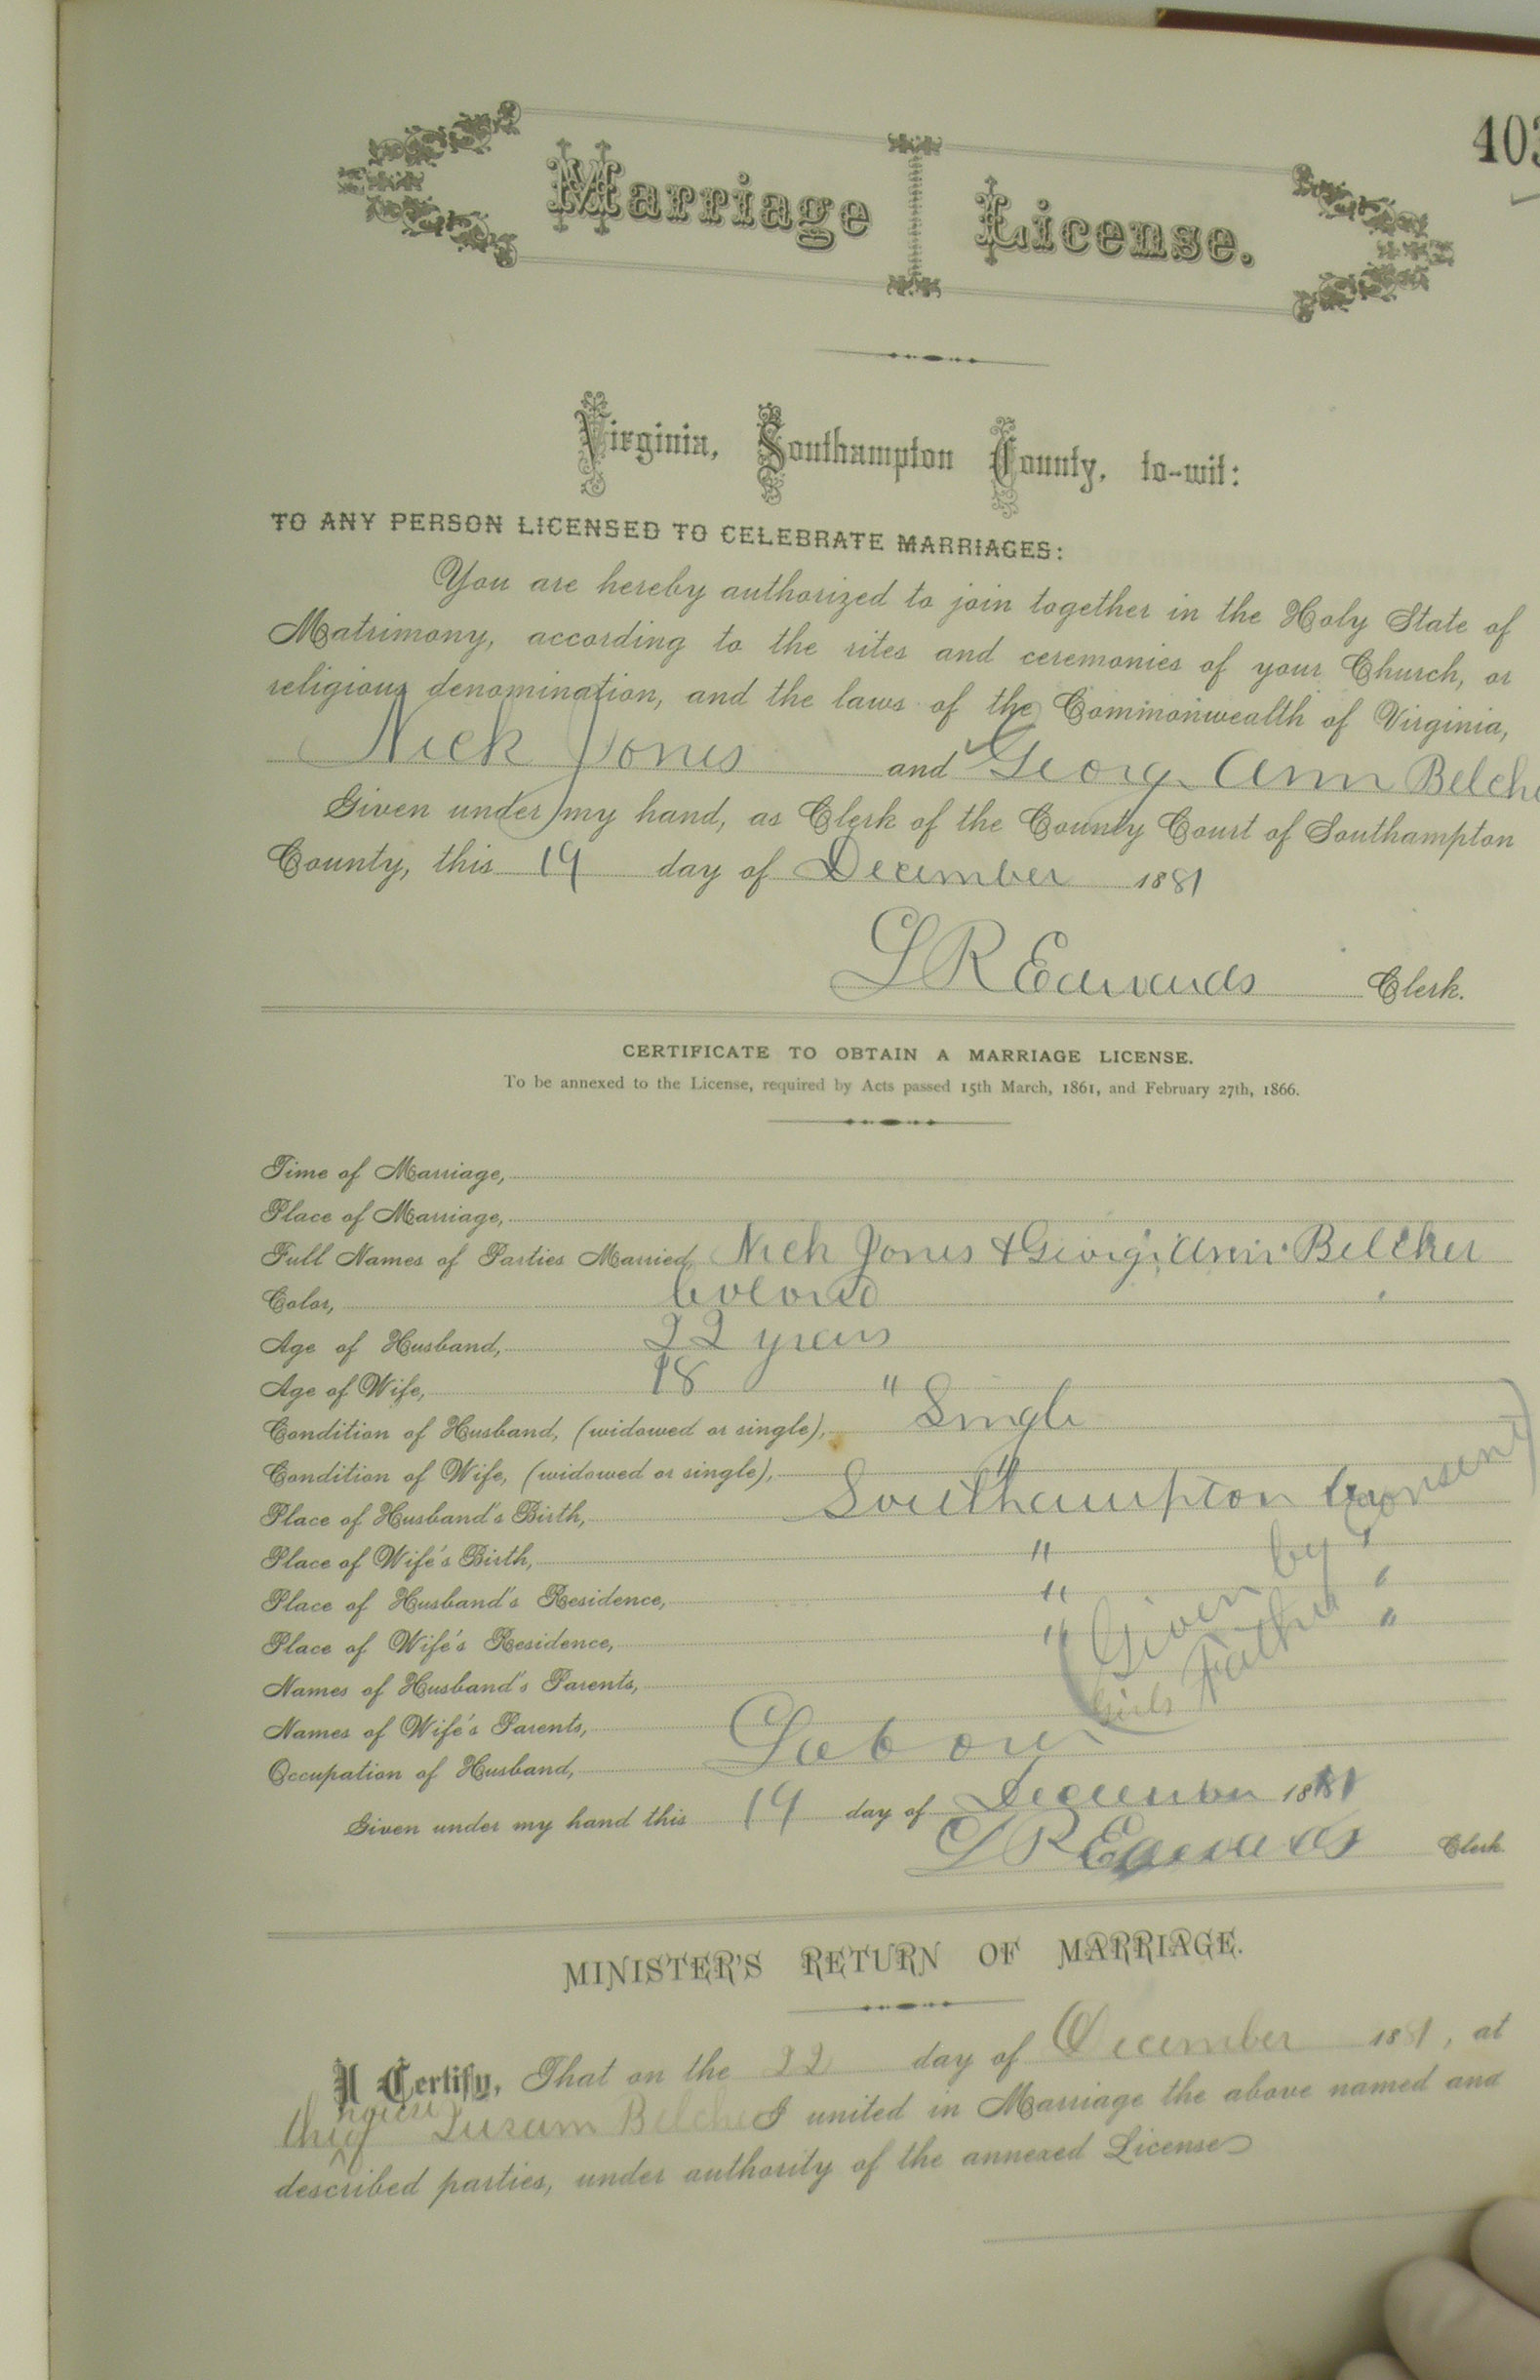 403
Marriage License.
Virginia, Southampton County, to-wit:
TO ANY PERSON LICENSED TO CELEBRATE MARRIAGES:
You are hereby authorized to join together in the Holy State of
Matrimony, according to the rites and ceremonies of your Church, or
religious denomination, and the laws of the Commonwealth of Virginia,
Nick Jones and Georg Ann Belche
Given under my hand, as Clerk of the County Court of Southampton
County, this 19 day of December 1881
L R Edwards Clerk.
CERTIFICATE TO OBTAIN A MARRIAGE LICENSE.
To be annexed to the License, required by Acts passed 15th March, 1861, and February 27th, 1866.
Time of Marriage,
Place of Marriage,
Full Names of Parties Married, Nick Jones & Georgi Ann Belcher
Color, Colored
Age of Husband, 22 years
Age of Wife, 18 "
Condition of Husband, (widowed or single), Single
Condition of Wife, (widowed or single), "
Place of Husband's Birth, Southampton Co
Place of Wife's Birth, " "
Place of Husband's Residence, " "
Place of Wife's Residence, " "
Given by consent
Girls Father
Names of Husband's Parents,
Names of Wife's Parents,
Occupation of Husband, Labour
Given under my hand this 19 day of December 1881
L R Edwards Clerk.
MINISTER'S RETURN OF MARRIAGE.
I Certify, That on the 22 day of December 1881, at
I united in Marriage the above named and
described parties, under authority of the annexed License